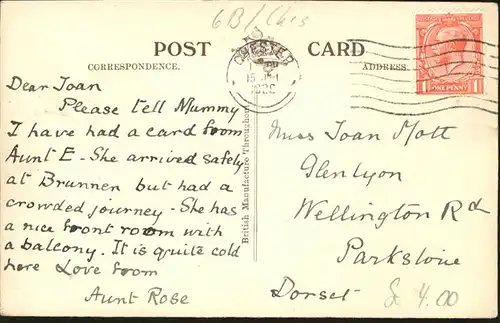 GB/Ches
POST CARD
CORRESPONDENCE.
ADDRESS.
CHESTER
ONE PENNY
Dear Joan
Please tell Mummy
I have had a card from
Aunt E - She arrived safely
at Brunnen but had a
crowded journey - She has
a nice front room with
a balcony. It is quite cold
here Love from
Aunt Rose
British Manufacture Throughout
Miss Joan Mott
Glenlyon
Wellington Rd
Parkstone
Dorset
4.00